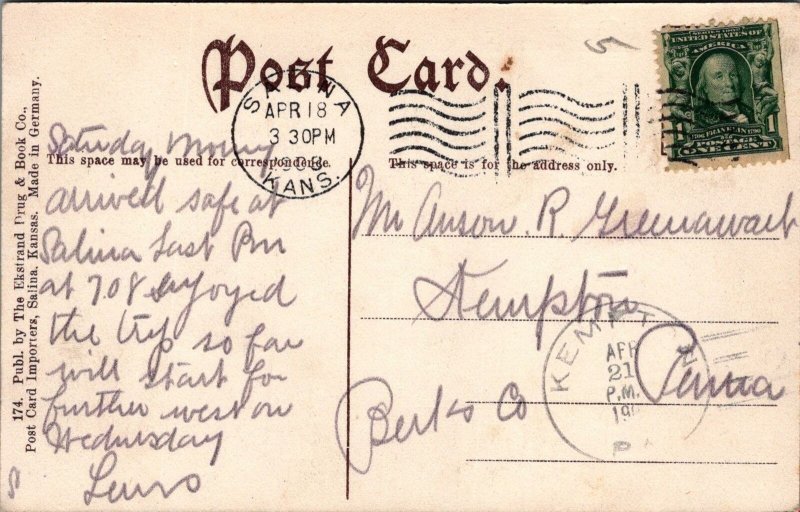 Post Card.
SALINA
APR 18
3 30PM
1908
KANS.
SERIES 1902
UNITED STATES OF
AMERICA
1 FRANKLIN 1
POSTAGE
ONE CENT
This space may be used for correspondence.
This space is for the address only.
174. Publ. by The Ekstrand Drug & Book Co.,
Post Card Importers, Salina, Kansas. Made in Germany.
Saturday Morning
arrived safe at
Salina Last Pm
at 7.08 enjoyed
the trip so far
will start for
further west on
Wednesday
Lewis
Mr Anson R. Greenawalt
Kempton
Berks Co Penna
KEMPTON
APR
21
P.M.
190
PA